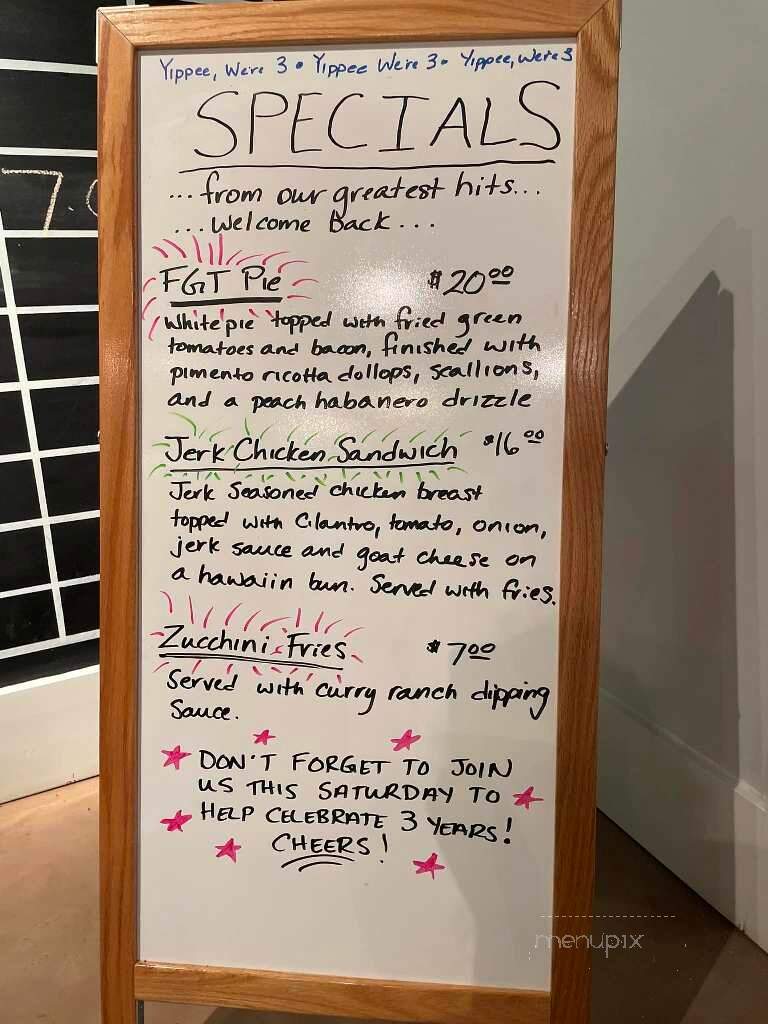 Yippee, We're 3 • Yippee We're 3 • Yippee, We're 3
SPECIALS
...from our greatest hits...
...Welcome Back...
FGT Pie $20.00
White pie topped with fried green
tomatoes and bacon, finished with
pimento ricotta dollops, scallions,
and a peach habanero drizzle
Jerk Chicken Sandwich $16.00
Jerk Seasoned chicken breast
topped with Cilantro, tomato, onion,
jerk sauce and goat cheese on
a hawaiin bun. Served with fries.
Zucchini Fries $7.00
Served with curry ranch dipping
Sauce.
DON'T FORGET TO JOIN
US THIS SATURDAY TO
HELP CELEBRATE 3 YEARS!
CHEERS!
menupix